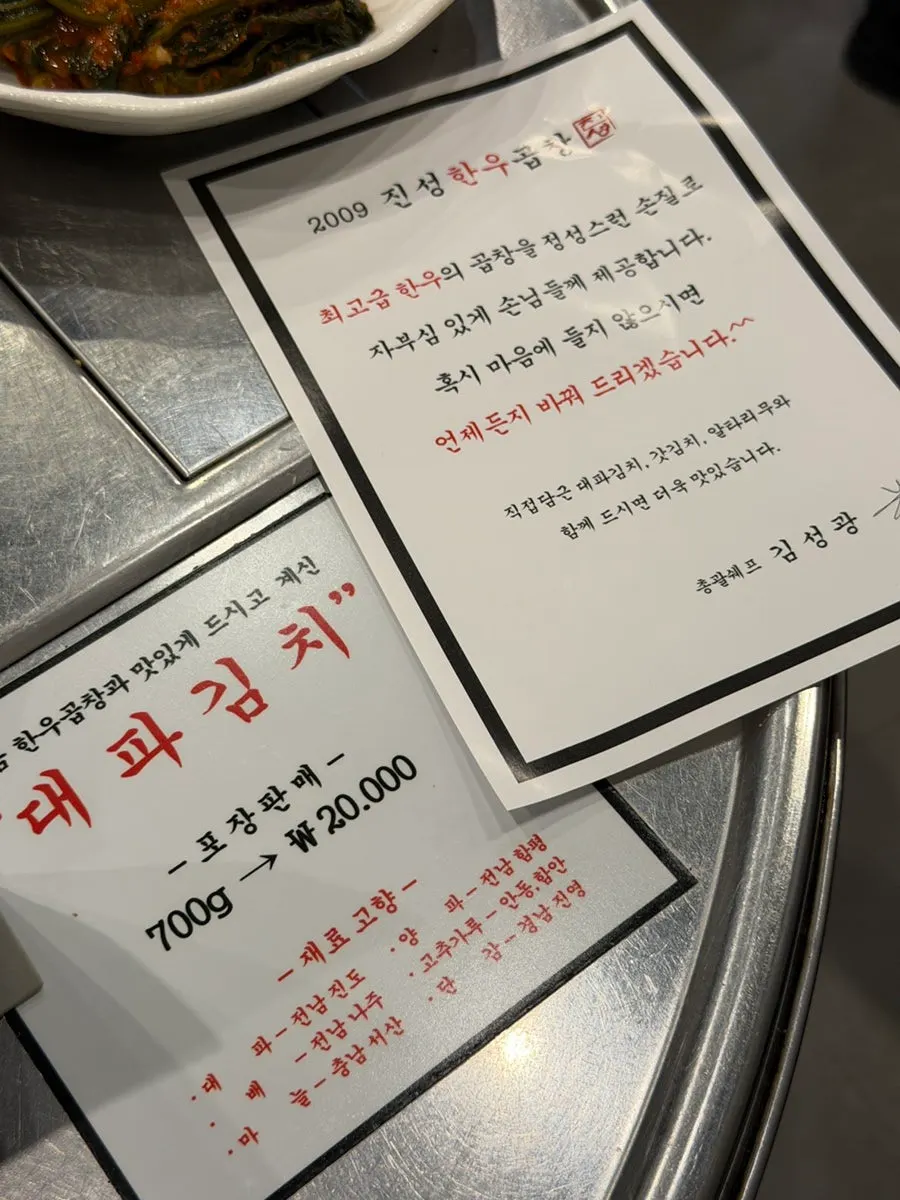 2009 진성한우곱창 진성
최고급 한우의 곱창을 정성스런 손질로
자부심 있게 손님들께 제공합니다.
혹시 마음에 들지 않으시면
언제든지 바꿔 드리겠습니다.^^
직접담근 대파김치, 갓김치, 알타리무와
함께 드시면 더욱 맛있습니다.
총괄쉐프 김성광
한우곱창과 맛있게 드시고 계신
대파김치”
- 포장판매 -
700g → ₩ 20.000
- 재료 고향 -
· 대 파 - 전남 진도 · 양 파 - 전남 함평
· 배 - 전남 나주 · 고추가루 - 안동,함안
· 마 늘 - 충남 서산 · 단 감 - 경남 진영